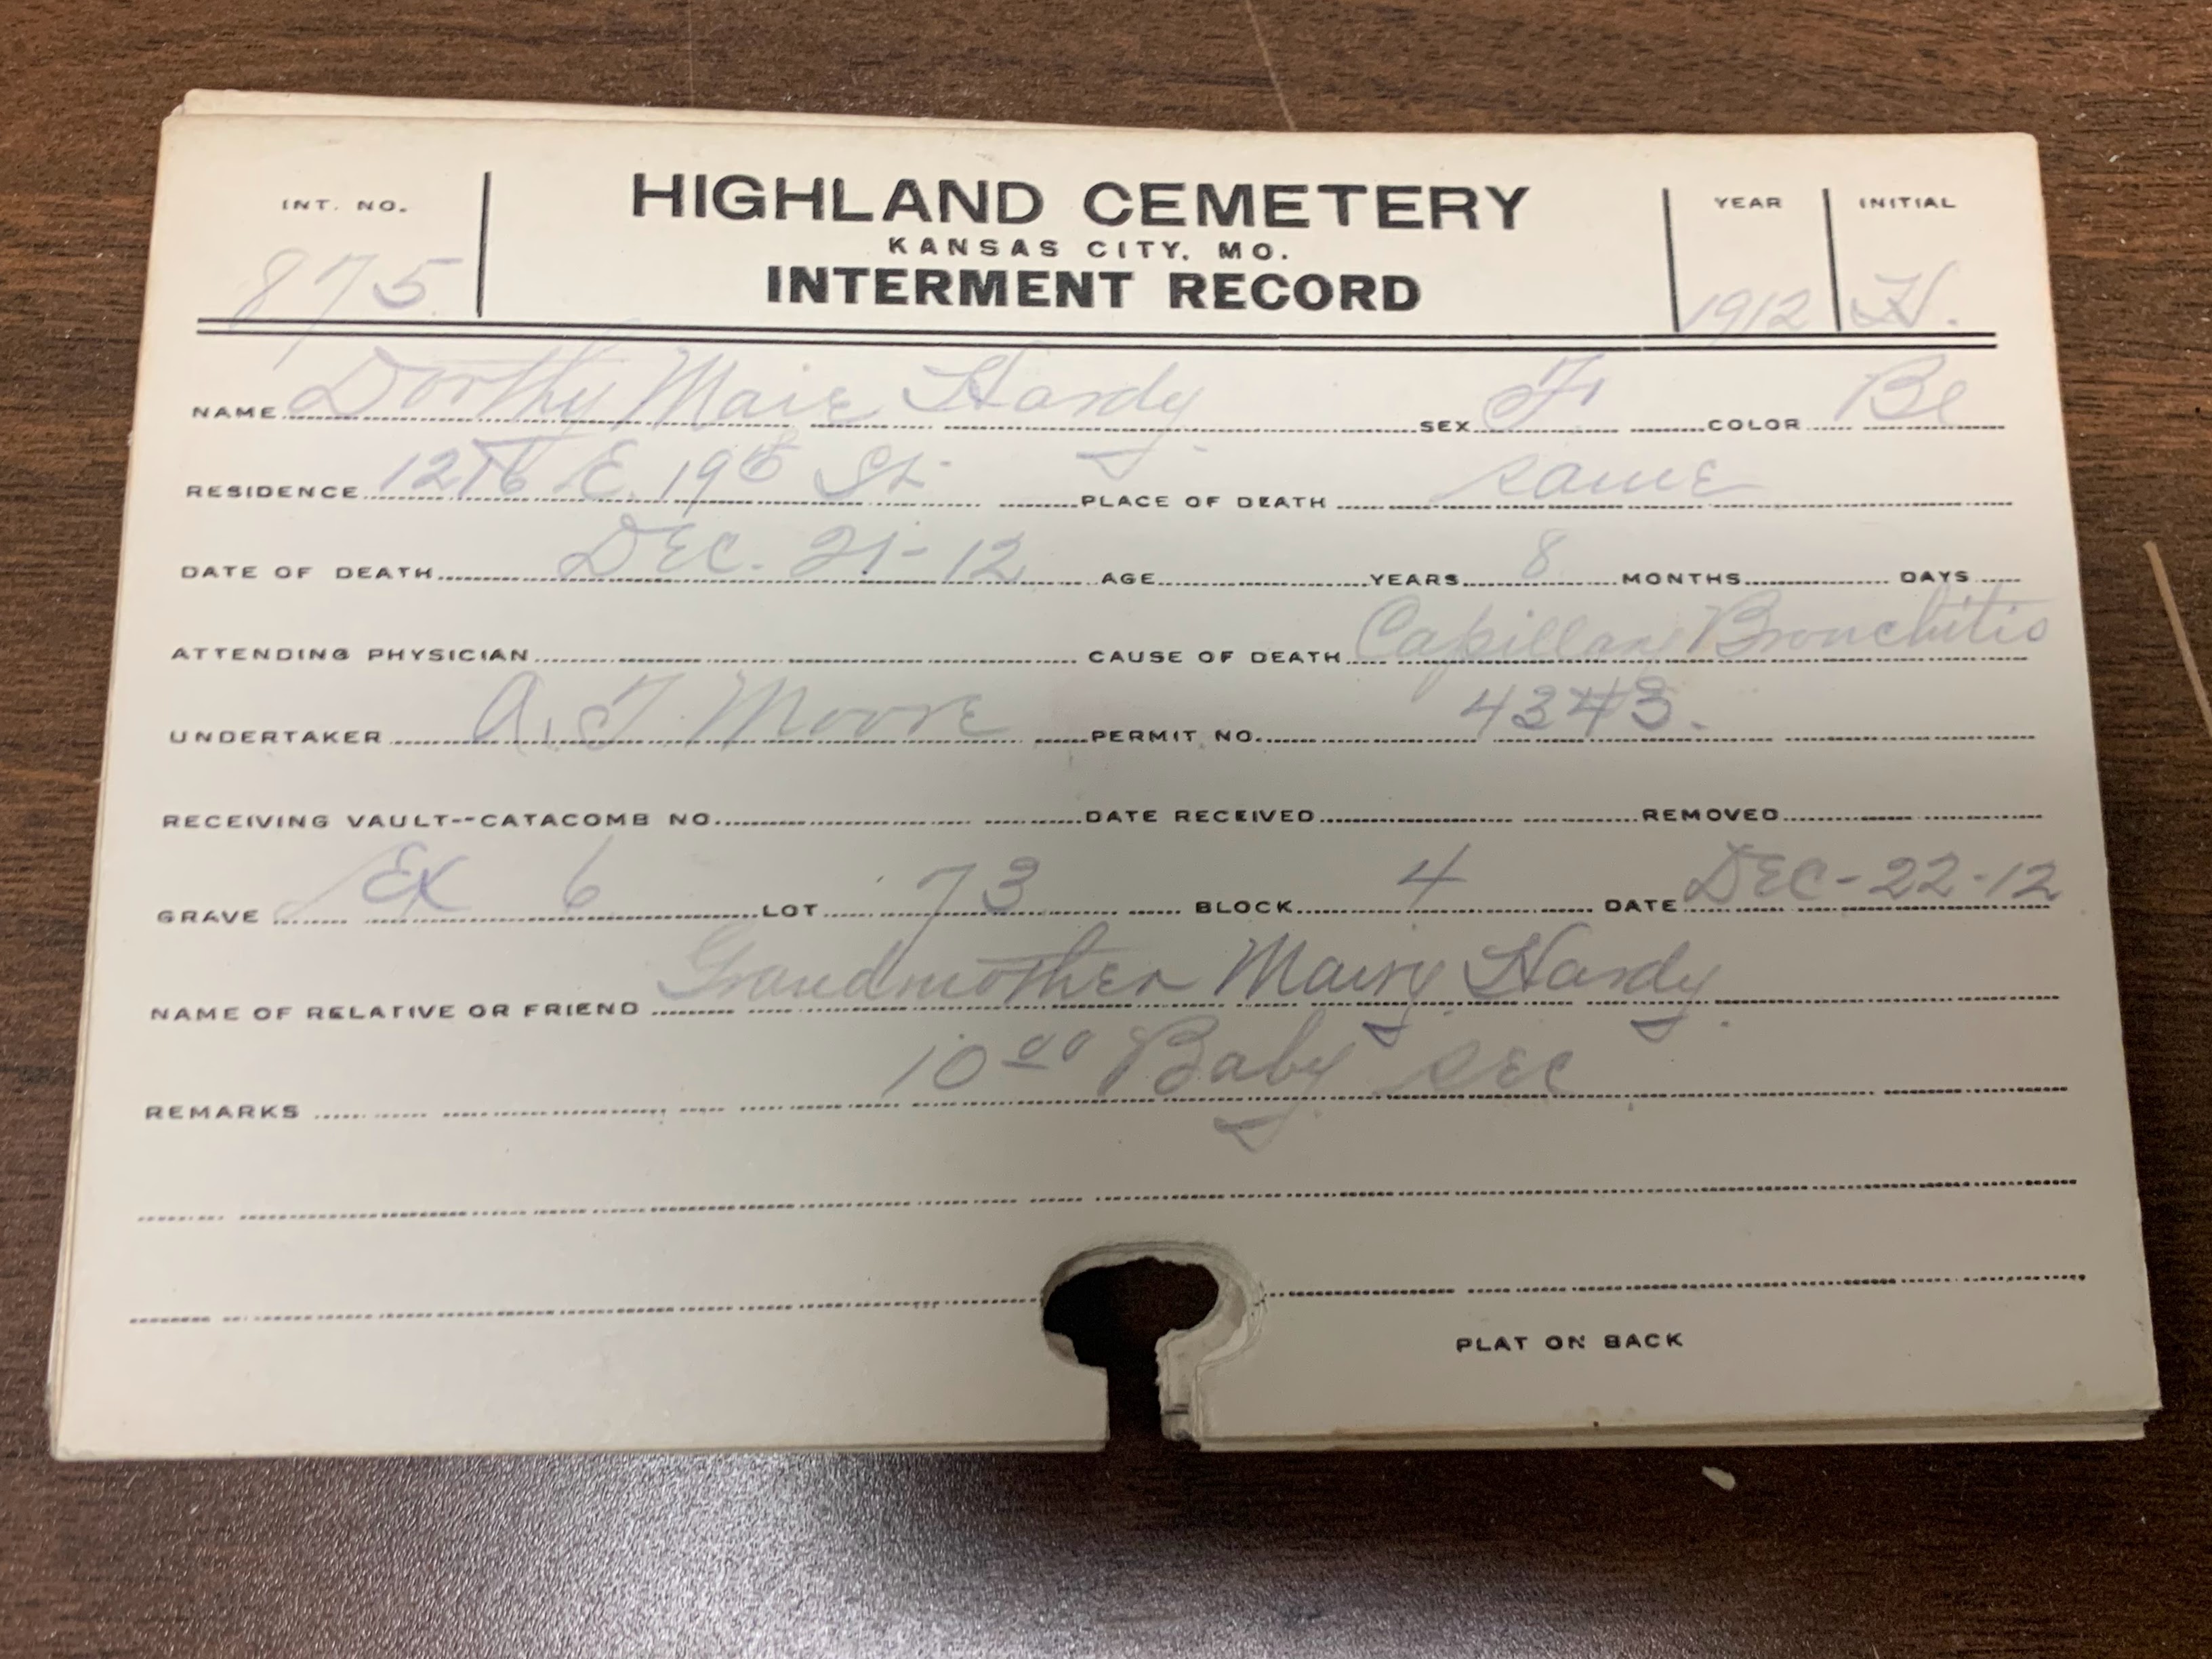 INT. NO. HIGHLAND CEMETERY YEAR INITIAL
KANSAS CITY, MO.
875 INTERMENT RECORD 1912 H.
NAME Dorthy Maie Hardy SEX F COLOR Be
RESIDENCE E. 19th St. PLACE OF DEATH same
DATE OF DEATH DEC. 21-12 AGE YEARS 8 MONTHS DAYS
ATTENDING PHYSICIAN CAUSE OF DEATH Capillary Bronchitis
UNDERTAKER A. T. Moore PERMIT NO. 4343.
RECEIVING VAULT--CATACOMB NO. DATE RECEIVED REMOVED
GRAVE Ex 6 LOT 73 BLOCK 4 DATE DEC-22-12
NAME OF RELATIVE OR FRIEND Grandmother Mairy Hardy.
REMARKS 10 00 Baby sec
PLAT ON BACK